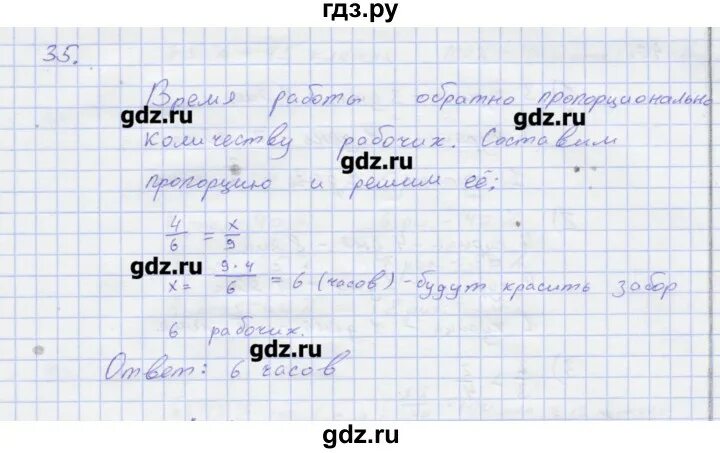 гдз.ру
35.
Время работы обратно пропорционально
gdz.ru
gdz.ru
количеству рабочих. Составим
gdz.ru
пропорцию и решим её:
4/6 = x/9
gdz.ru
x = 9·4/6 = 6 (часов) - будут красить забор
6 рабочих.
gdz.ru
Ответ: 6 часов
gdz.ru